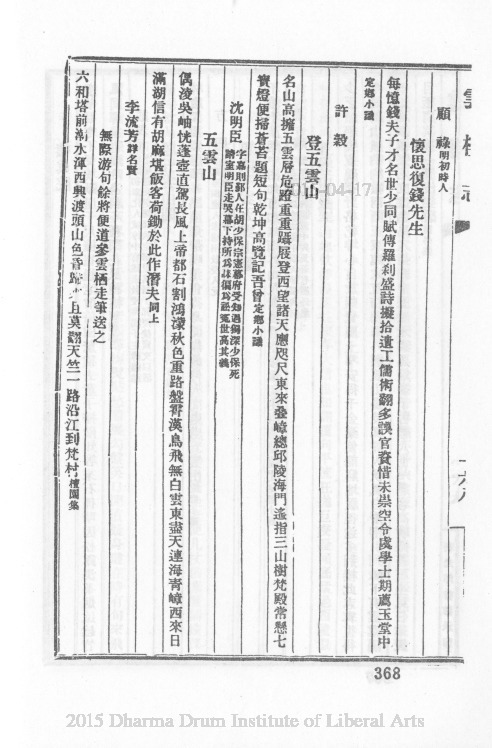 雲棲志
顧祿明初時人
懷思復錢先生
每憶錢夫子才名世少同賦傳羅刹盛詩掇拾遺工儒術翻多誤官資惜未崇空令虞學士期薦玉堂中
定鄉小識
許穀
登五雲山
名山高擁五雲層危磴重重躡屐登西望諸天應咫尺東來疊嶂總邱陵海門遙指三山樹梵殿常懸七
寶燈便掃蒼苔題短句乾坤高覽記吾曾定鄉小識
沈明臣字嘉則鄞人在胡少保宗憲幕府受知遇獨深少保死
請室明臣走哭墓下持所為誄徧為訟冤世高其義
五雲山
偶淩吳岫恍蓬壺直駕長風上帝都石劃鴻濛秋色重路盤霄漢鳥飛無白雲東盡天連海青嶂西來日
滿湖信有胡麻堪飯客荷鋤於此作潛夫同上
李流芳詳名賢
無際游句餘將便道參雲棲走筆送之
六和塔前潮水渾西興渡頭山色昏 且莫翻天竺一路沿江到梵村檀園集
368
2015 Dharma Drum Institute of Liberal Arts